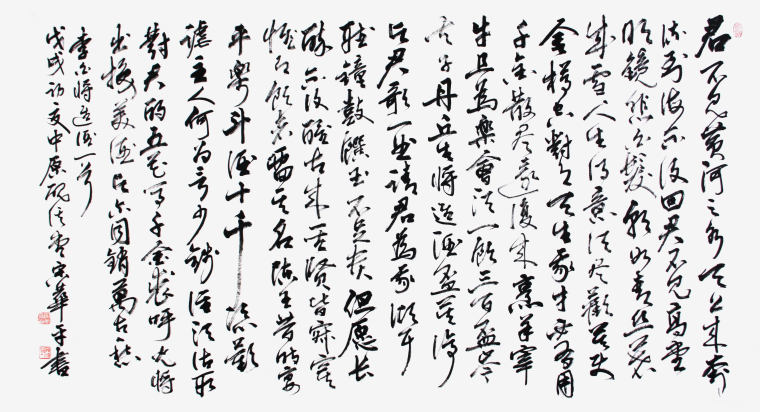 君不見黄河之水天上来奔
流到海不復回君不見高堂
明鏡悲白髮朝如青丝暮
成雪人生得意须尽歡莫使
金樽空對月天生我才必有用
千金散尽还復来烹羊宰
牛且為樂會须一飲三百盃岑
夫子丹丘生將進酒盃莫停
与君歌一曲請君為我傾耳
听鐘鼓饌玉不足贵但愿长
醉不復醒古来圣賢皆寂寞
惟有飲者留其名陈王昔时宴
平樂斗酒十千恣歡
謔主人何为言少錢径须沽取
對君酌五花马千金裘呼儿将
出换美酒与尔同銷萬古愁
李白將进酒一首
戊戌初夏中原宋華平書